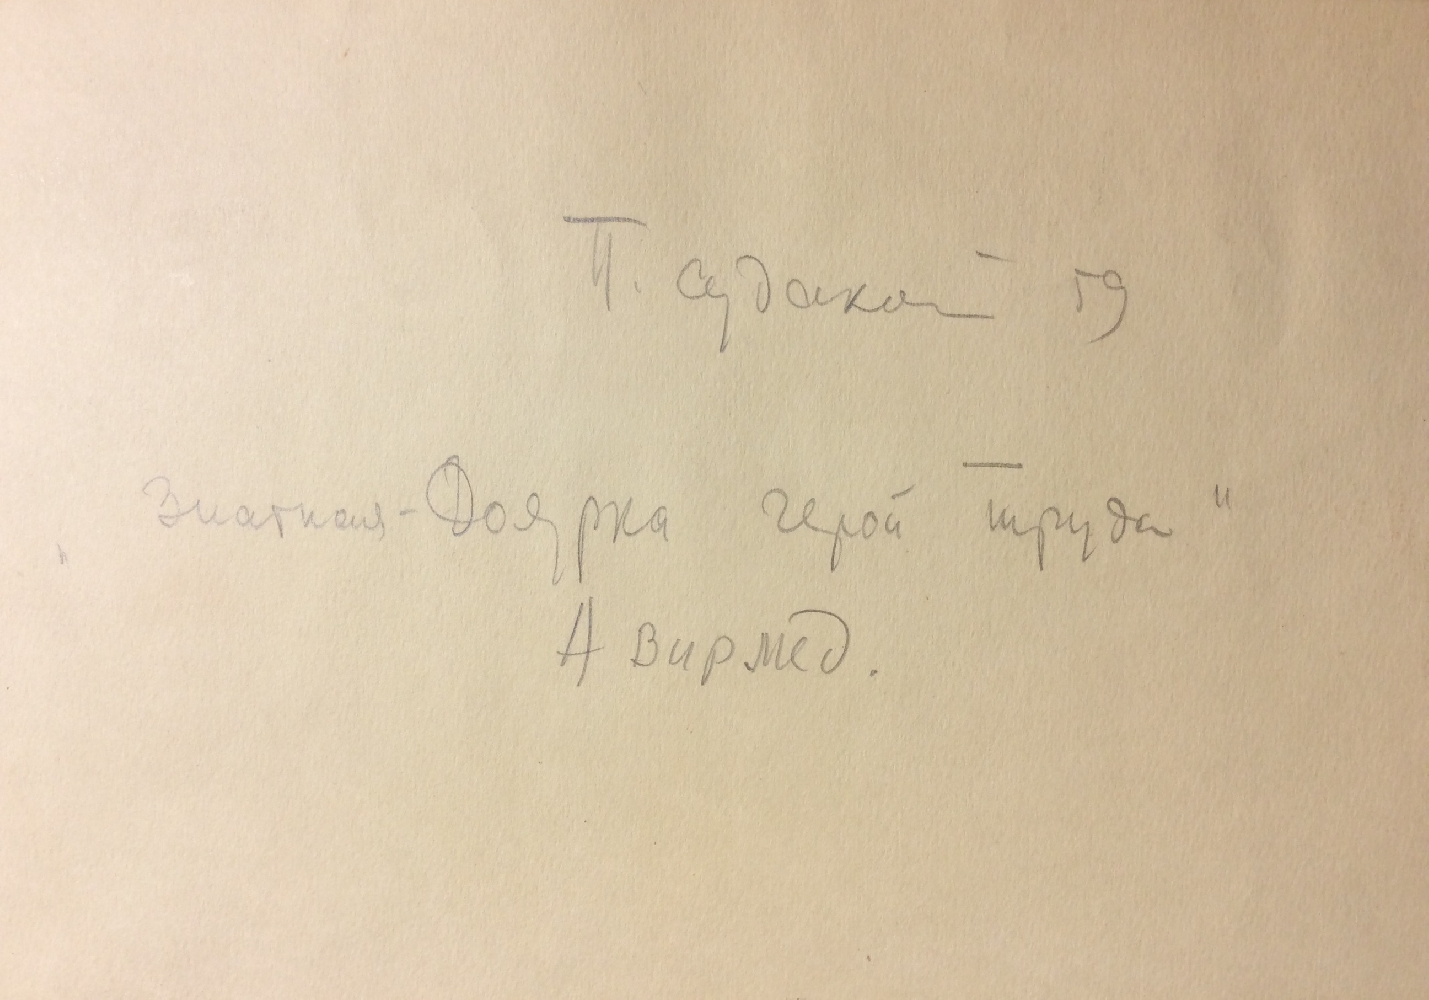 П. Судаков 59
"Знатная-Доярка герой труда"
А Вирмед.